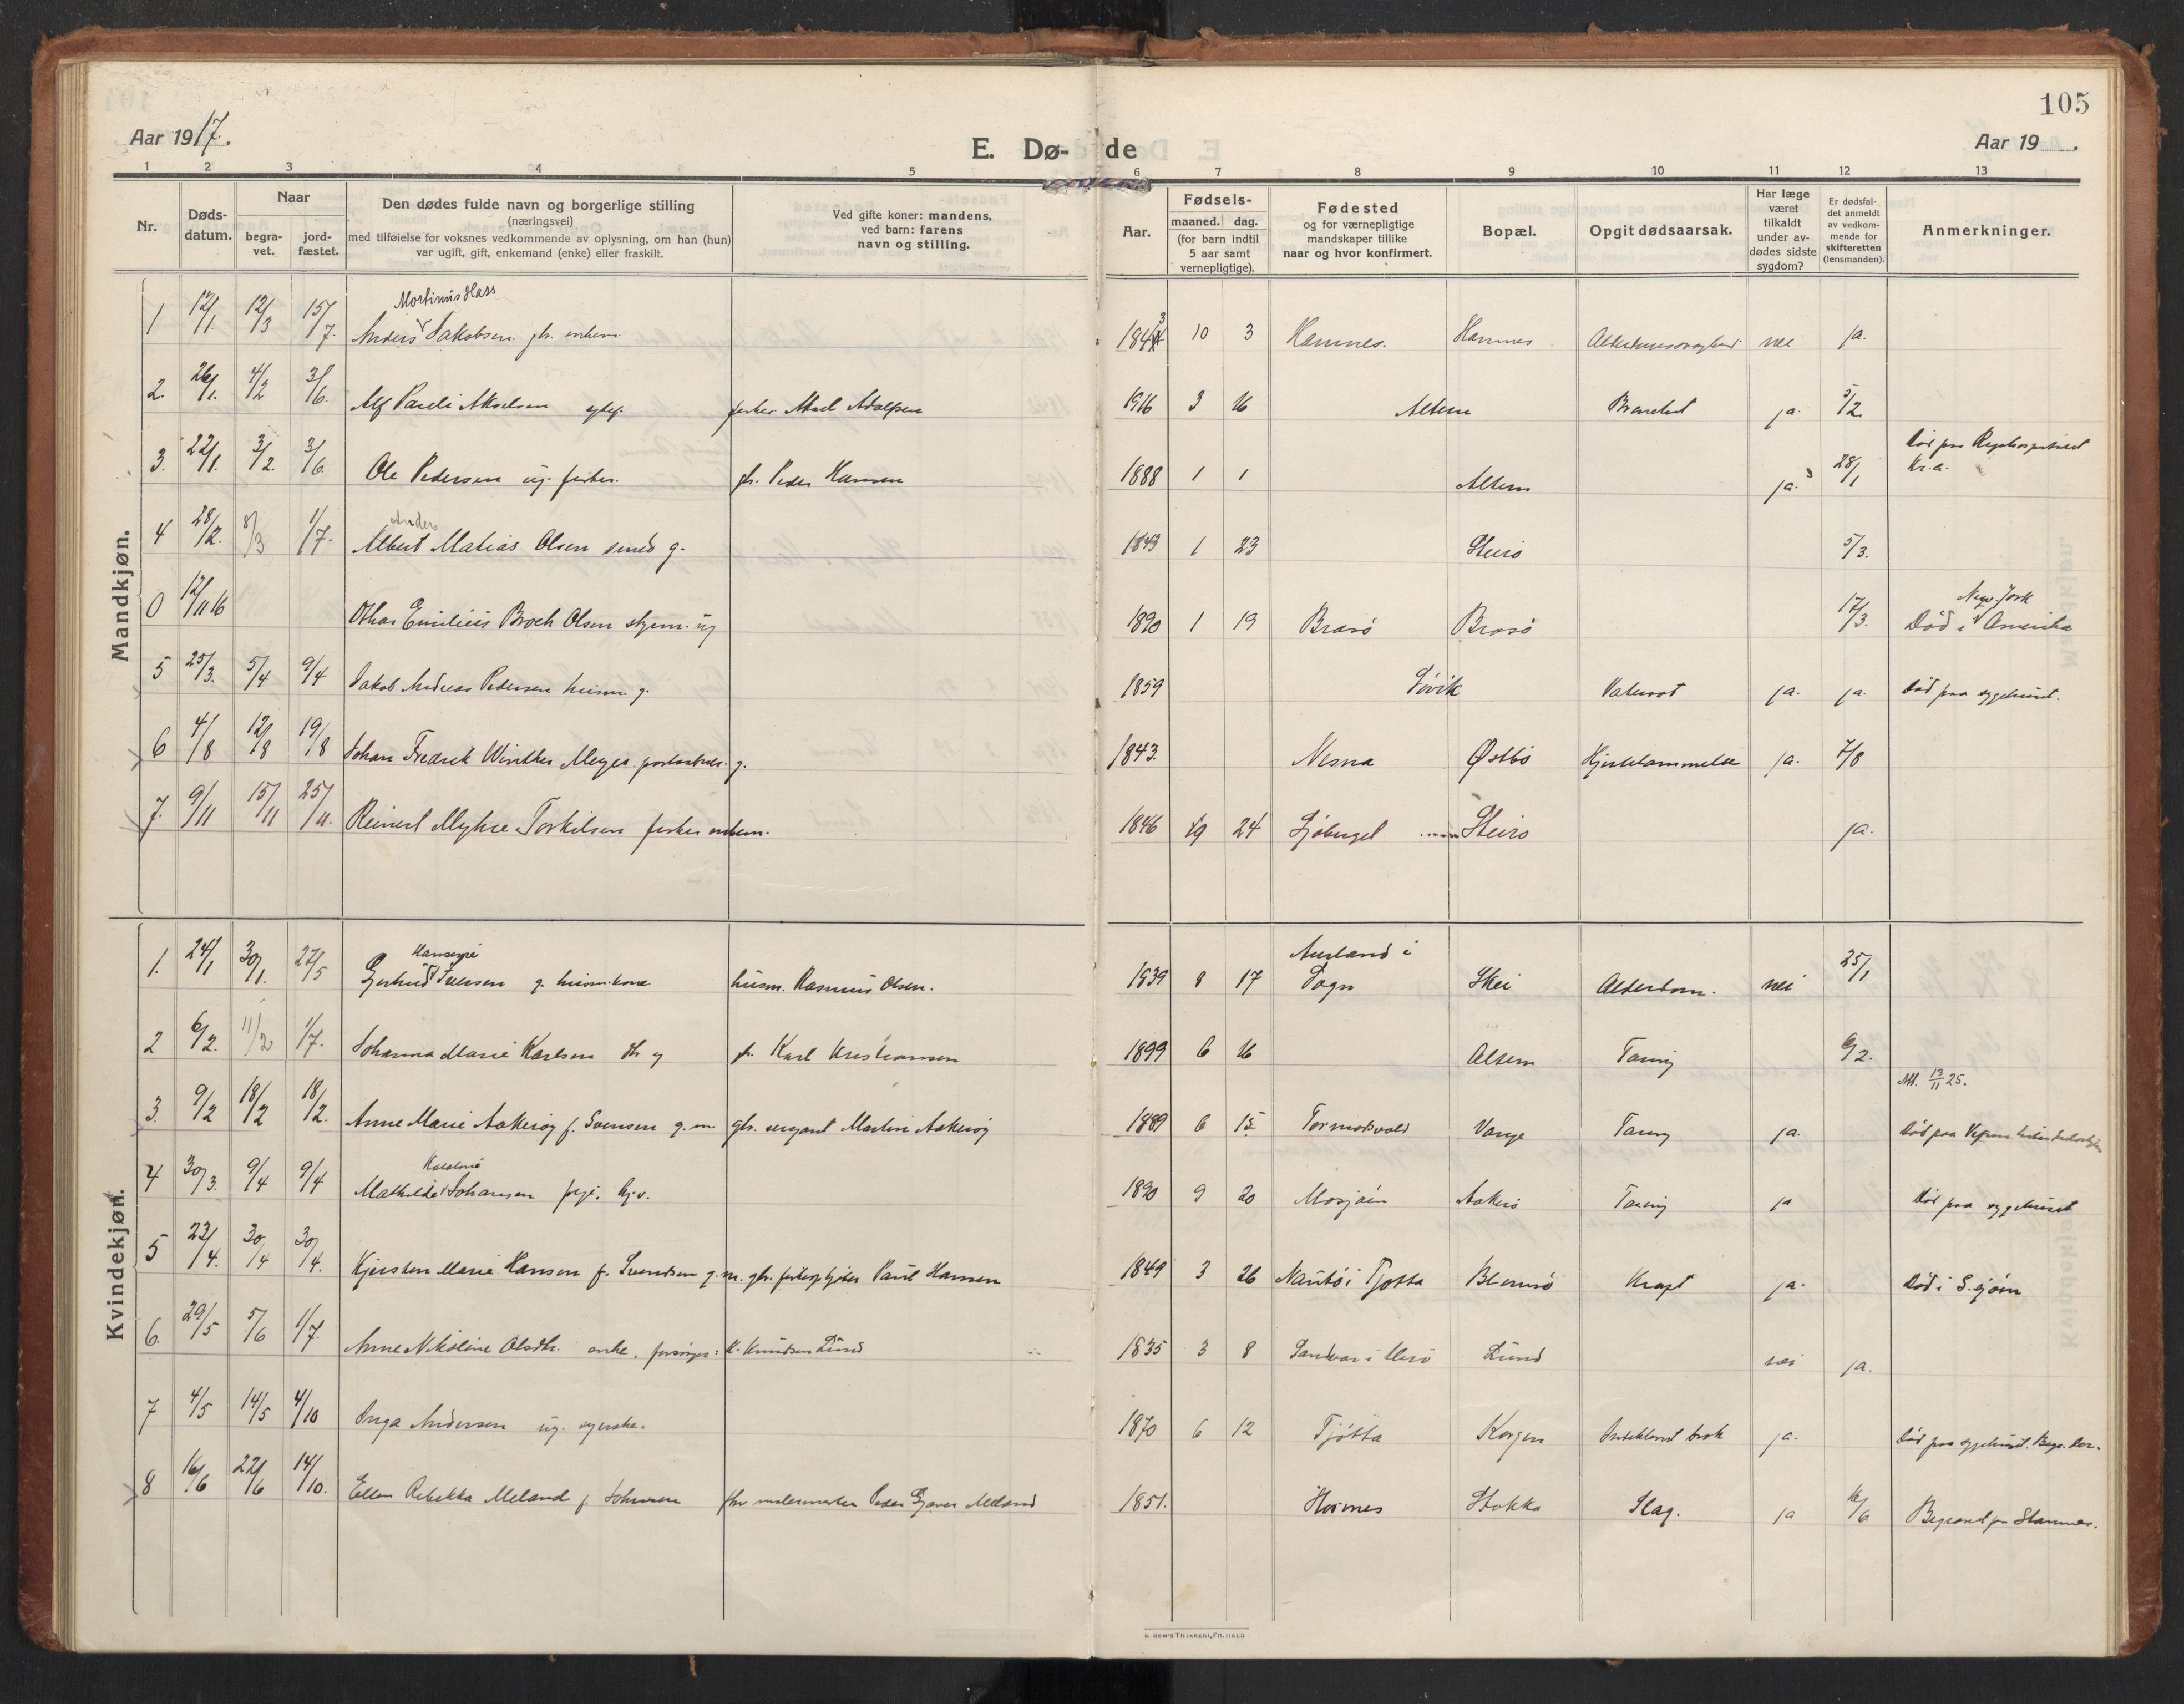 105
Aar 1917.
E. Dø- de
Aar 19 .
1 2 3 4 5 6 7 8 9 10 11 12 13
Nr.
Døds-
datum.
Naar
begra-
vet.
jord-
fæstet.
Den dødes fulde navn og borgerlige stilling
(næringsvei)
med tilføielse for voksnes vedkommende av oplysning, om han (hun)
var ugift, gift, enkemand (enke) eller fraskilt.
Ved gifte koner: mandens,
ved barn: farens
navn og stilling.
Aar.
Fødsels-
maaned. dag.
(for barn indtil
5 aar samt
vernepligtige).
Fødested
og for værnepligtige
mandskaper tillike
naar og hvor konfirmert.
Bopæl.
Opgit dødsaarsak.
Har læge
været
tilkaldt
under av-
dødes sidste
sygdom?
Er dødsfal-
det anmeldt
av vedkom-
mende for
skifteretten
(lensmanden).
Anmerkninger.
Mandkjøn.
Mortinus Hass
1 12/1. 12/3 15/7. Anders Jakobsen gb. enkem. 1843 10 3 Hamnes. Hamnes nei ja.
2. 26/1. 4/2 3/6. Alf Pauli Akselsen fisker Aksel Adolfsen 1916 3 16 Altern ja. 5/2.
Død paa Rigshospitalet
3. 22/1. 3/2. 3/6. Ole Pedersen ug. fisker. gb. Peder Hansen 1888 1 1 Altern ja. 28/1 Kr.a.
Anders
4 28/2. 8/3 1/7. Albert Matias Olsen smed g. 1843 1 23 Steiro 5/3.
New-York
0 12/11 16 Emilius Broch Olsen ug 1890 1 19 Brasø Brasø 17/3. Død i Amerika
5 25/3. 5/4 9/4 Jakob Andreas Pedersen husm. g. 1859 Søvik Vatersot ja. ja. Død paa sygehuset.
6 4/8 12/8 19/8 Johan Fredrik Winther Meyer g. 1843. Nesna Østbø Hjertelammelse ja. 7/8
7. 9/11 15/11 25/11. Reinert Myhre Torkilsen fisker enkem. 1846 24 Sjøberget Steiro ja.
Kvindekjøn.
Hansine Aurland i
1. 24/1 30/1. 27/5 Gjertrud Iversen g. husm.kone husm. Rasmus Olsen. 1839 8 17 Sogn Skei Alderdom. nei 25/1
2 6/2. 11/2 1/7. Johanna Marie Karlsen f. Karl Kristiansen 1899 6 16 Altern Taring 6/2.
Att. 13/11 25.
3. 9/2 18/2 18/2. Anne Marie Aakerøy f. Svensen g. m. gb. sergant Martin Aakerøy 1889 6 15 Tormodsvold Taring ja. Død paa
4 30/3. 9/4 9/4 Mathilde Johansen 1890 9 20 Mosjøen Aakerø Taring ja Død paa sygehuset
5 23/4. 30/4 30/4. Kjersten Marie Hansen f. Svendsen g. m. gb. Paul Hansen 1849 3 26 i Tjøtta Blomsø Kræft ja. Død i S.sjøen
6. 29/5 5/6 1/7. Anne Nikoline Olsdtr. enke, forsørger: K. Knudsen Lund 1835 3 8 Sandvær i Herø Lund nei ja.
7 4/5 14/5 4/10 Inga Andersen ug. syerske. 1870 6 12 Tjøtta Korgen Indeklemt brok ja. Død paa sygehuset.
8 16/6 22/6 14/10. Ellen Rebekka Meland f. Johnsen Peder Meland 1851. Stokka Slag. ja 16/6